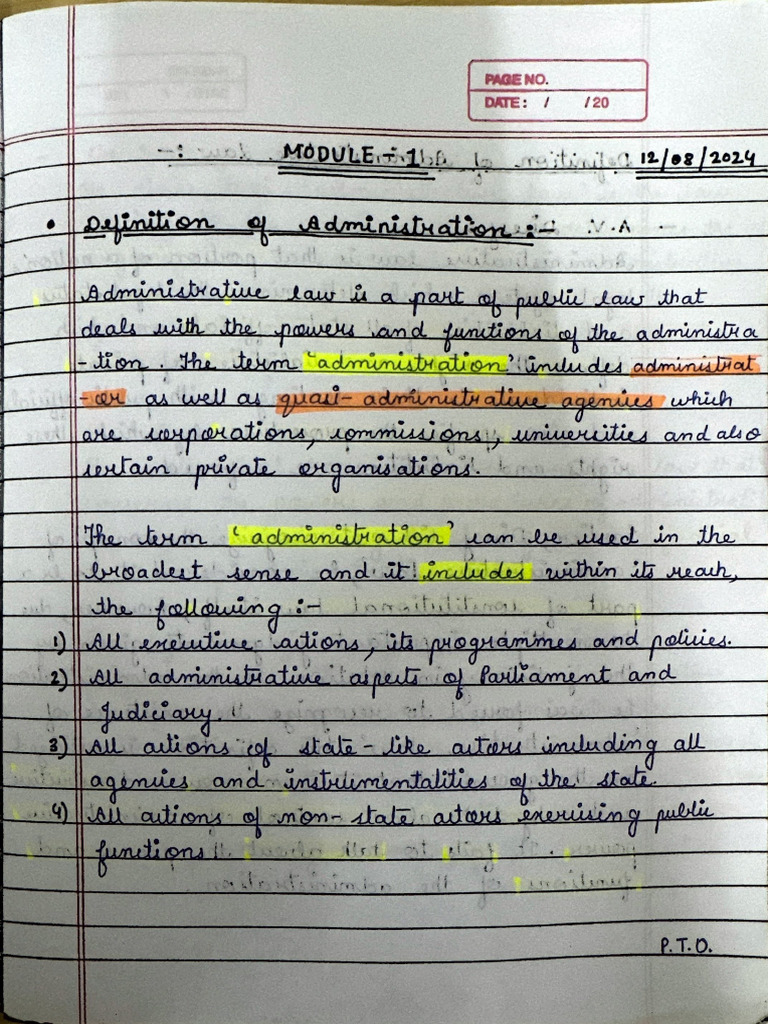 PAGE NO.
DATE: / /20
MODULE - 1 12/08/2024
• Definition of Administration :-
Administrative law is a part of public law that
deals with the powers and functions of the administra
-tion. The term 'administration' includes administrat
-or as well as quasi-administrative agencies which
are corporations, commissions, univercities and also
certain private organisations.
The term 'administration' can be used in the
broadest sense and it includes within its reach,
the following :-
1) All executive actions, its programmes and policies.
2) All administrative aspects of Parliament and
Judiciary.
3) All actions of state-like actors including all
agencies and instrumentalities of the state.
4) All actions of non-state actors exercising public
functions.
P.T.O.